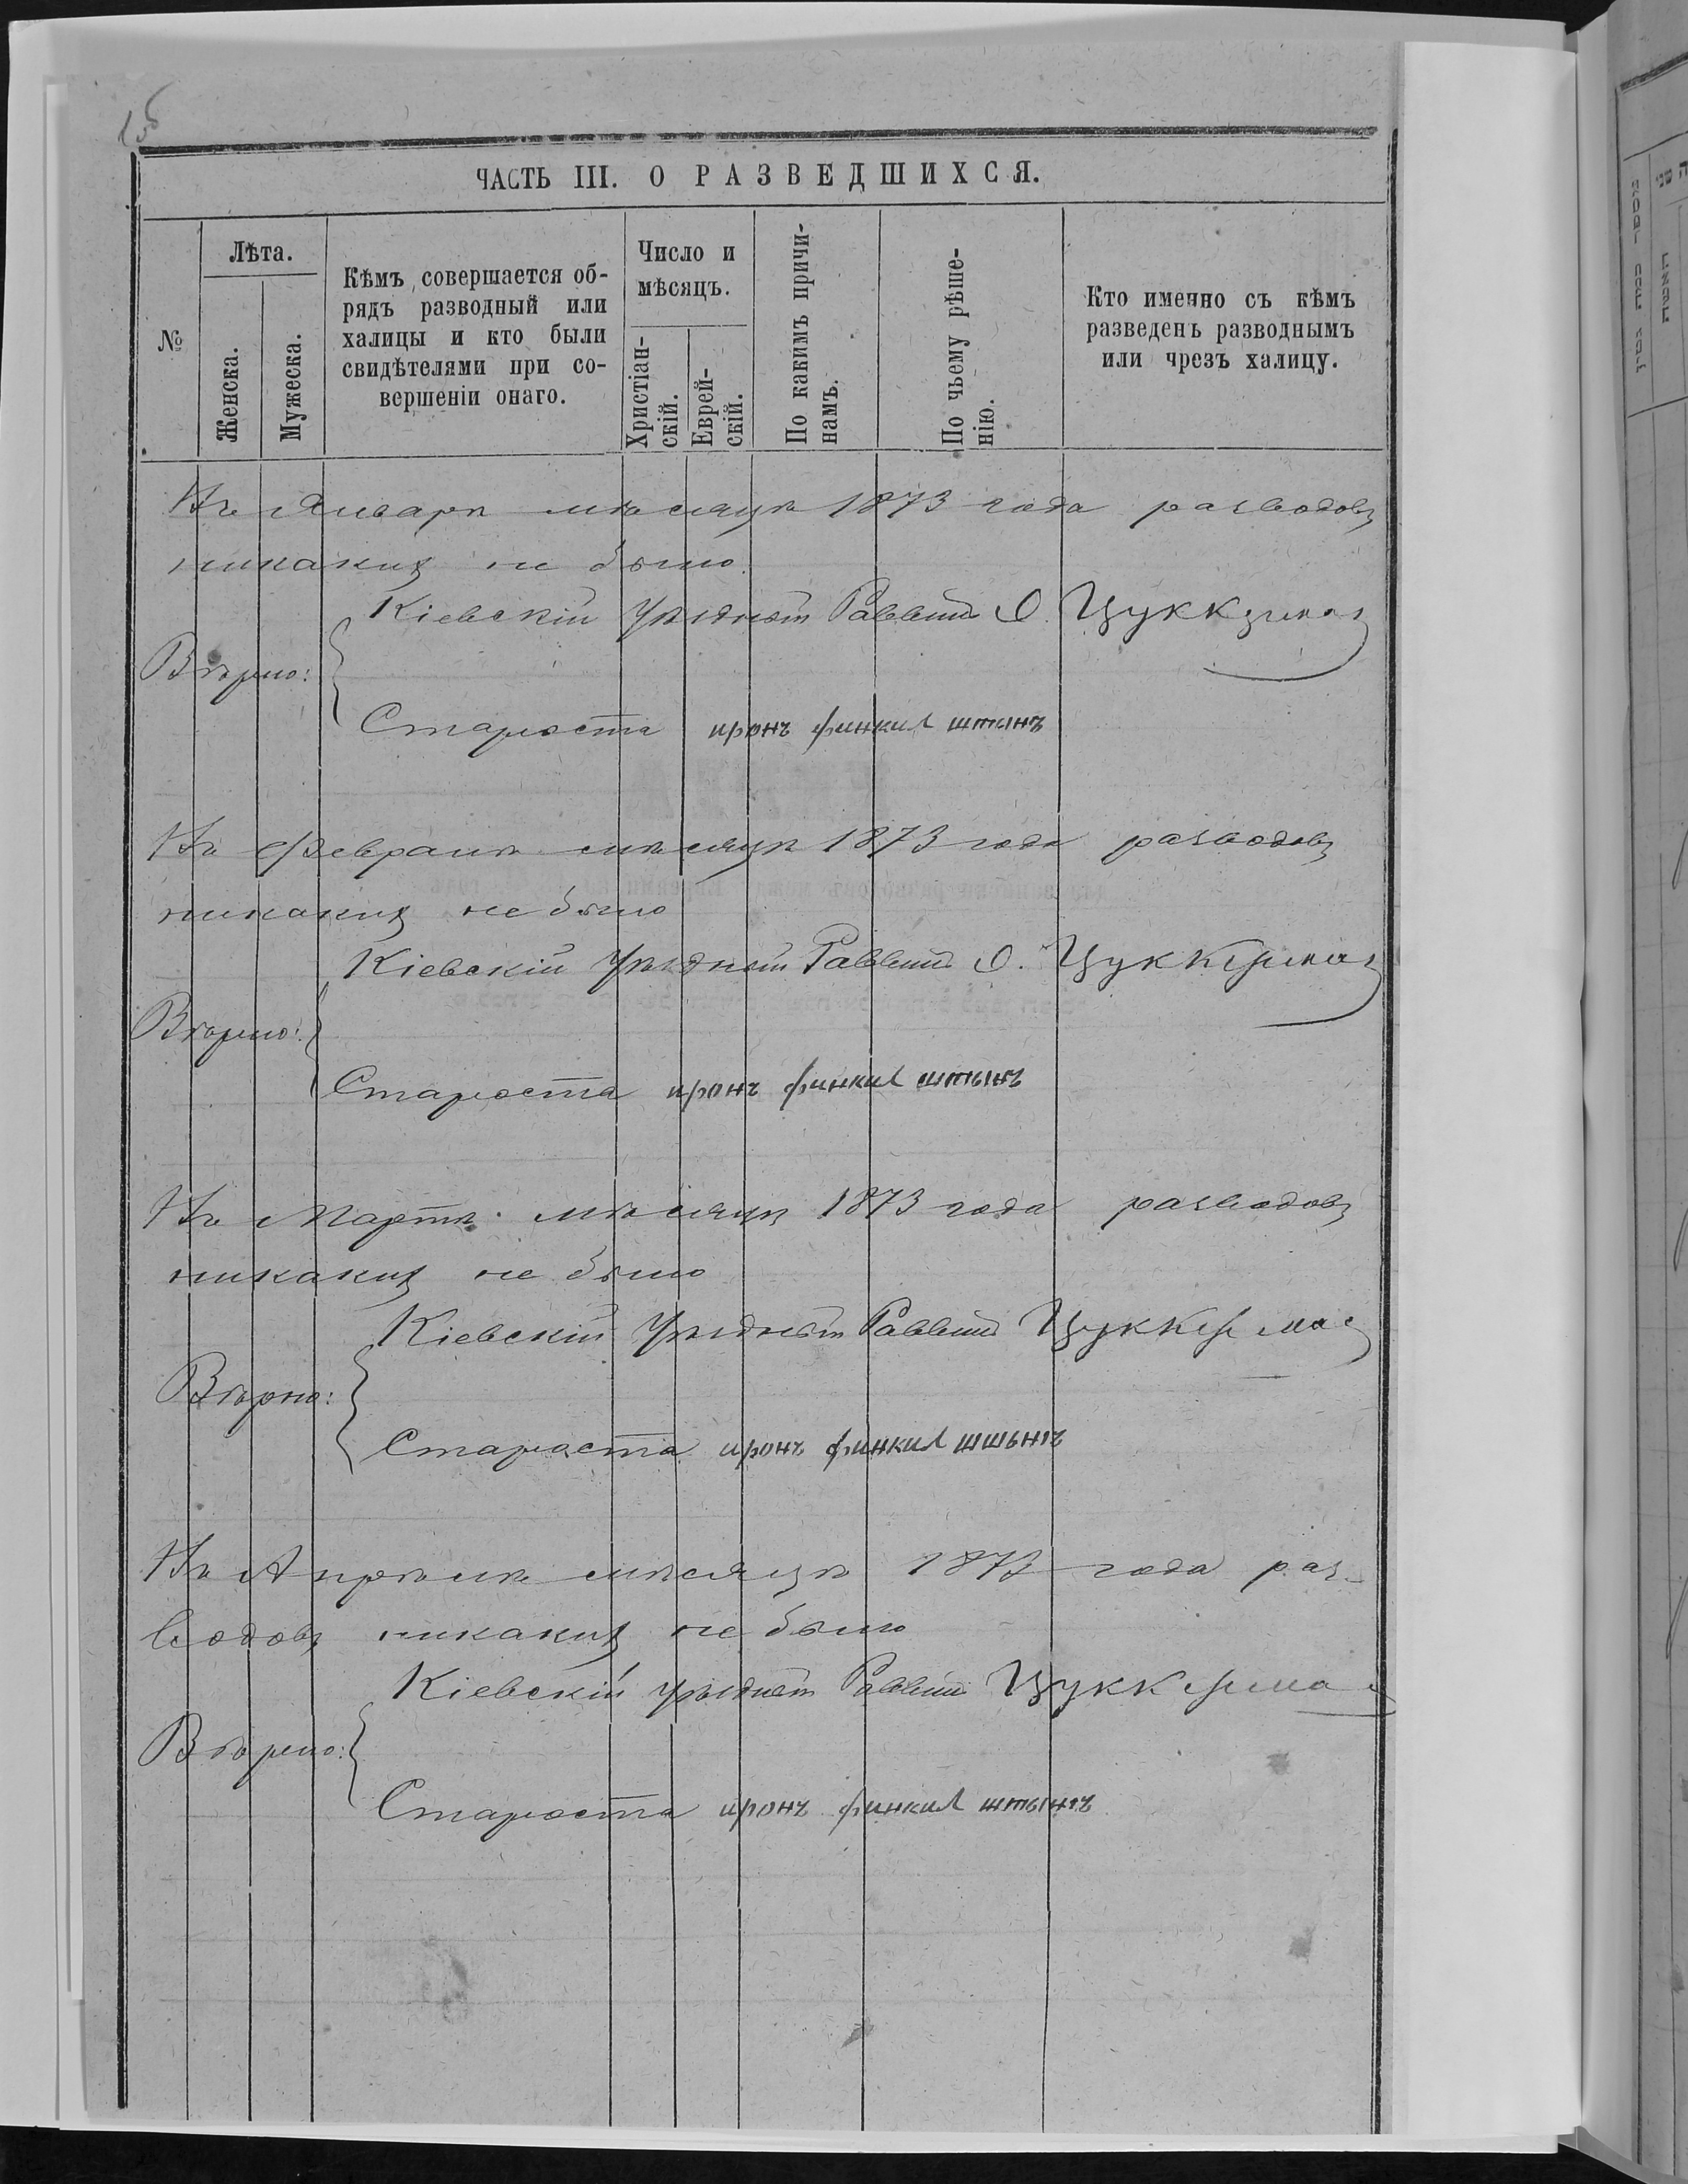 ЧАСТЬ III. О РАЗВЕДШИХСЯ.
№
Лѣта.
Женска.
Мужеска.
Кѣмъ совершается об-
рядъ разводный или
халицы и кто были
свидѣтелями при со-
вершеніи онаго.
Число и
мѣсяцъ.
Христіан-
скій.
Еврей-
скій.
По какимъ причи-
намъ.
По чьему рѣше-
нію.
Кто именно съ кѣмъ
разведенъ разводнымъ
или чрезъ халицу.
Въ Январѣ мѣсяцѣ 1873 года разводовъ
никакихъ не было.
Кіевскій Уѣздный Раввинъ О. Цуккерман
Вѣрно:
Староста иронъ финкил штынъ
Въ Февралѣ мѣсяцѣ 1873 года разводовъ
никакихъ не было
Кіевскій Уѣздный Раввинъ О. Цуккерман
Вѣрно:
Староста иронъ финкил штынъ
Въ Мартѣ мѣсяцѣ 1873 года разводовъ
никакихъ не было
Кіевскій Уѣздный Раввинъ Цуккерман
Вѣрно:
Староста иронъ финкил шшынъ
Въ Апрѣлѣ мѣсяцѣ 1873 года раз-
водовъ никакихъ не было
Кіевскій Уѣздный Раввинъ Цуккерман
Вѣрно:
Староста иронъ финкил штынъ